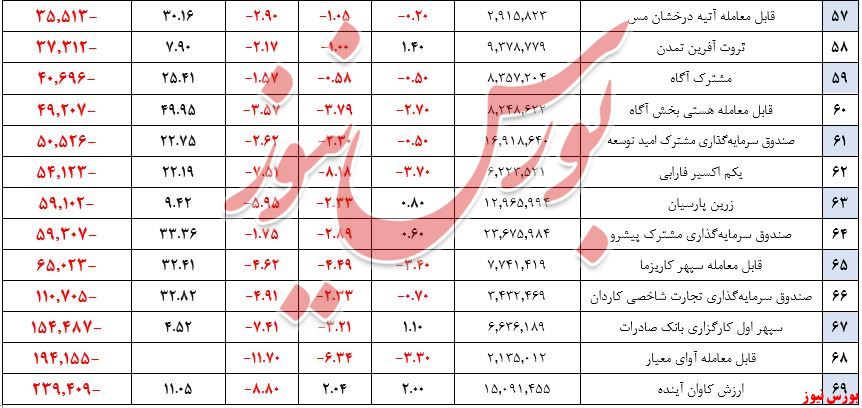 ۵۷ قابل معامله آتیه درخشان مس ۲,۹۱۵,۸۲۳ -۰.۲۰ -۱.۰۵ -۲.۹۰ ۳۰.۱۶ -۳۵,۵۱۳
۵۸ ثروت آفرین تمدن ۹,۳۷۸,۷۷۹ ۱.۴۰ -۱.۰۰ -۲.۱۷ ۷.۹۰ -۳۷,۳۱۲
۵۹ مشترک آگاه ۸,۳۵۷,۲۰۴ -۰.۵۰ -۰.۵۸ -۱.۵۷ ۲۵.۴۱ -۴۰,۶۹۶
۶۰ قابل معامله هستی بخش آگاه ۸,۲۴۸,۶۲۲ -۲.۷۰ -۳.۷۹ -۳.۵۷ ۴۹.۹۵ -۴۹,۲۰۷
۶۱ صندوق سرمایه‌گذاری مشترک امید توسعه ۱۶,۹۱۸,۶۴۰ -۰.۵۰ -۲.۳۰ -۲.۶۲ ۲۲.۷۵ -۵۰,۵۲۶
۶۲ یکم اکسیر فارابی ۶,۲۲۳,۵۲۱ -۳.۷۰ -۸.۱۸ -۷.۵۱ ۲۲.۱۹ -۵۴,۱۲۳
۶۳ زرین پارسیان ۱۲,۹۶۵,۹۹۴ ۰.۸۰ -۲.۳۳ -۵.۹۵ ۹.۴۲ -۵۹,۱۰۲
۶۴ صندوق سرمایه‌گذاری مشترک پیشرو ۲۳,۶۷۵,۹۸۴ ۰.۶۰ -۲.۸۹ -۱.۷۵ ۳۳.۳۶ -۵۹,۳۰۷
۶۵ قابل معامله سپهر کاریزما ۷,۷۴۱,۴۱۹ -۳.۴۰ -۴.۴۹ -۴.۶۲ ۳۲.۴۱ -۶۵,۰۲۳
۶۶ صندوق سرمایه‌گذاری تجارت شاخصی کاردان ۳,۴۳۲,۴۶۹ -۰.۷۰ -۲.۳۳ -۴.۹۱ ۳۲.۸۲ -۱۱۰,۷۰۵
۶۷ سپهر اول کارگزاری بانک صادرات ۶,۶۳۶,۱۸۹ ۱.۱۰ -۳.۲۱ -۷.۴۱ ۴.۵۲ -۱۵۴,۴۸۷
۶۸ قابل معامله آوای معیار ۲,۱۳۵,۰۱۲ -۳.۳۰ -۶.۳۴ -۱۱.۷۰ -۱۹۴,۱۵۵
۶۹ ارزش کاوان آینده ۱۵,۰۹۱,۴۵۵ ۲.۰۰ ۲.۰۴ -۸.۸۰ ۱۱.۰۵ -۲۳۹,۴۰۹
بورس نیوز
بورس نیوز